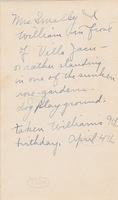 Mrs. Smalley and
William in front
of Villa Jaco -
or rather standing
in one of the sunken
rose-gardens -
dog playground.
taken William's 9th
birthday. April 4th